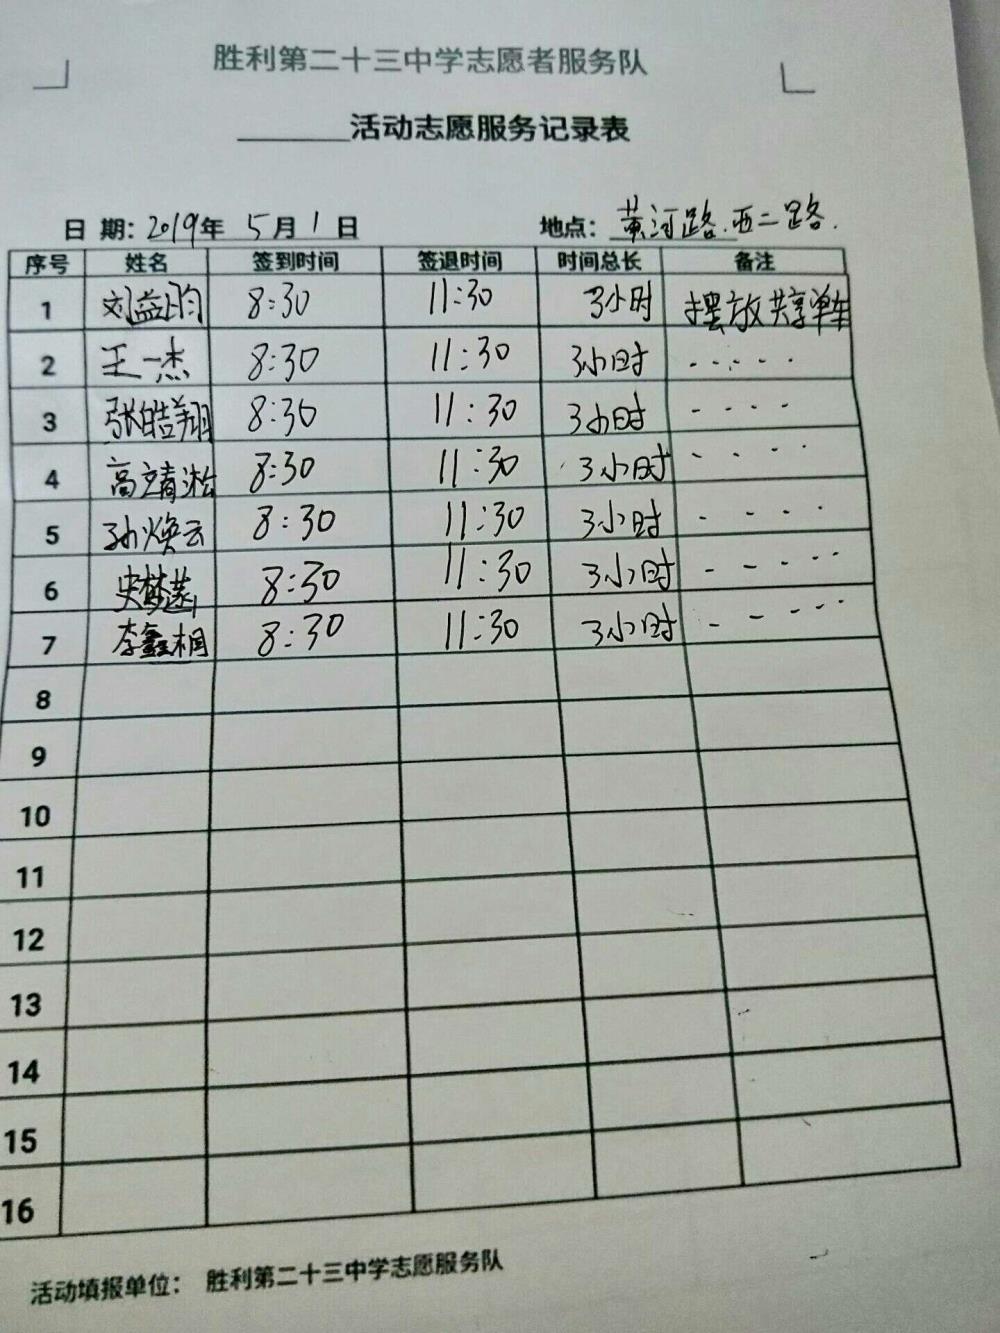 胜利第二十三中学志愿者服务队
______活动志愿服务记录表
日 期：2019年 5月 1日 地点：黄河路.西二路.
序号 姓名 签到时间 签退时间 时间总长 备注
1 刘益昀 8:30 11:30 3小时 摆放共享单车
2 王一杰 8:30 11:30 3小时 .....
3 张皓翔 8:30 11:30 3小时 ....
4 高靖淞 8:30 11:30 3小时 ....
5 孙焕云 8:30 11:30 3小时 ....
6 史梦 8:30 11:30 3小时 .....
7 李鑫桐 8:30 11:30 3小时 .....
8
9
10
11
12
13
14
15
16
活动填报单位： 胜利第二十三中学志愿服务队